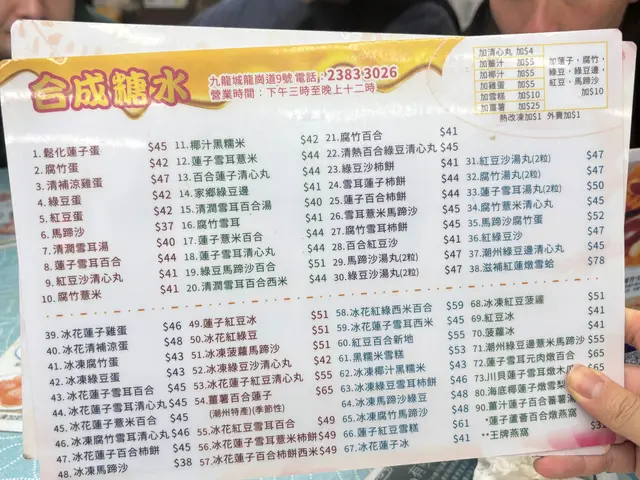 合成糖水
九龍城龍崗道9號 電話:2383 3026
營業時間:下午三時至晚上十二時
加清心丸 加$4
加薑汁 加$5
加椰汁 加$5
加雞蛋 加$5
加雪糕 加$10
加蕃薯 加$25
加蓮子,腐竹,
綠豆,綠豆邊,
紅豆,馬蹄沙
加$10
熱改凍加$1 外賣加$1
1.鬆化蓮子蛋 $45
2.腐竹蛋 $42
3.清補涼雞蛋 $47
4.綠豆蛋 $42
5.紅豆蛋 $42
6.馬蹄沙 $37
7.清潤雪耳湯 $40
8.蓮子雪耳百合 $44
9.紅豆沙清心丸
10.腐竹薏米 $41
11.椰汁黑糯米 $42
12.蓮子雪耳薏米 $44
13.百合蓮子清心丸 $44
14.家鄉綠豆邊 $40
15.清潤雪耳百合湯 $45
16.腐竹雪耳 $41
17.蓮子薏米百合 $44
18.蓮子雪耳清心丸 $44
19.綠豆馬蹄沙 $51
20.清潤雪耳百合西米 $44
21.腐竹百合 $41
22.清熱百合綠豆清心丸 $45
23.綠豆沙柿餅 $44
24.雪耳蓮子柿餅 $44
25.蓮子百合柿餅 $44
26.雪耳薏米馬蹄沙 $45
27.腐竹雪耳柿餅 $45
28.百合紅豆沙 $41
29.馬蹄沙湯丸(2粒) $47
30.綠豆沙湯丸(2粒) $47
31.紅豆沙湯丸(2粒) $47
32.腐竹湯丸(2粒) $47
33.蓮子雪耳湯丸(2粒) $50
34.腐竹薏米清心丸 $45
35.馬蹄沙腐竹蛋 $52
36.紅綠豆沙 $47
37.潮州綠豆邊清心丸 $45
38.滋補紅蓮燉雪蛤 $78
39.冰花蓮子雞蛋 $46
40.冰花清補涼蛋 $48
41.冰凍腐竹蛋 $43
42.冰凍綠豆蛋 $43
43.冰花蓮子雪耳百合 $45
44.冰花蓮子雪耳清心丸 $45
45.冰花雪耳薏米百合 $45
46.冰凍腐竹雪耳清心丸 $46
47.冰花蓮子百合柿餅 $45
48.冰凍馬蹄沙 $38
49.蓮子紅豆冰 $51
50.冰花紅綠豆 $51
51.冰凍菠蘿馬蹄沙 $51
52.冰凍綠豆沙清心丸 $42
53.冰凍蓮子紅豆清心丸 $55
54.薑薯百合蓮子 $65
(潮州特產)(季節性)
55.冰花紅豆雪耳百合 $49
56.冰花蓮子雪耳薏米柿餅 $49
57.冰花蓮子雪耳百合柿餅西米 $49
58.冰花紅綠西米百合 $59
59.冰花蓮子雪耳西米 $45
60.紅豆百合新地 $55
61.黑糯米雪糕 $53
62.冰凍椰汁黑糯米 $43
63.冰凍綠豆雪耳柿餅 $46
64.冰凍腐竹馬蹄沙 $48
65.冰凍紅豆馬蹄沙 $48
66.蓮子雪糕 $51
67.冰花蓮子冰 $41
68.冰凍紅豆菠蘿 $51
69.紅豆冰 $41
70.菠蘿冰 $41
71.潮州綠豆邊薏米馬蹄沙 $55
72.蓮子雪耳元肉燉百合 $65
73.川貝蓮子雪耳燉木瓜 $65
80.海底椰蓮子燉雪梨
90.薑汁蓮子百合蕃薯湯
*蓮子蘆薈百合燉燕窩
**王牌燕窩